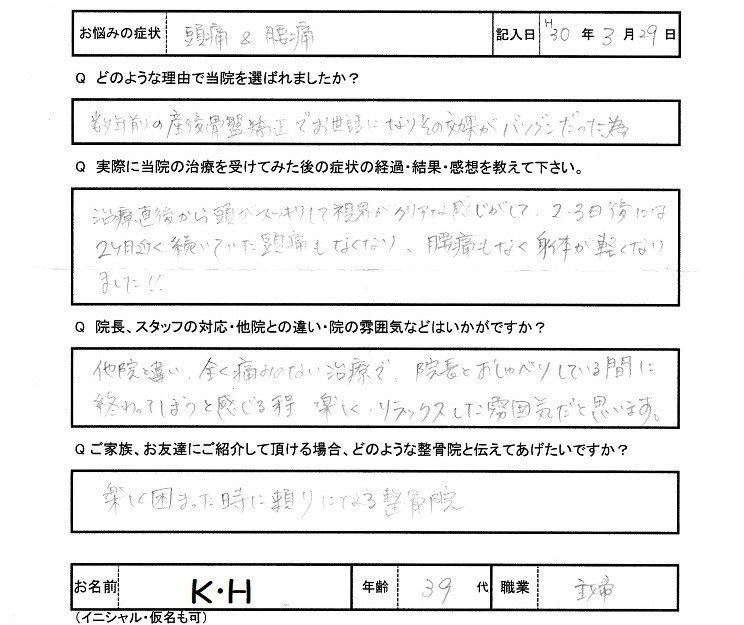 お悩みの症状 頭痛 & 腰痛 記入日 H30 年 3 月 29 日
Q どのような理由で当院を選ばれましたか？
数年前の産後骨盤矯正でお世話になりその効果がバツグンだった為
Q 実際に当院の治療を受けてみた後の症状の経過・結果・感想を教えて下さい。
治療直後から頭がスッキリして視界がクリアな感じがして、2・3日後には
2ヶ月近く続いていた頭痛もなくなり、腰痛もなく身体が軽くなり
ました!!
Q 院長、スタッフの対応・他院との違い・院の雰囲気などはいかがですか？
他院と違い、全く痛みのない治療で、院長とおしゃべりしている間に
終わってしまうと感じる程 楽しく、リラックスした雰囲気だと思います。
Q ご家族、お友達にご紹介して頂ける場合、どのような整骨院と伝えてあげたいですか？
楽しく困まった時に頼りになる整骨院
お名前 K・H 年齢 39 代 職業 主婦
（イニシャル・仮名も可）